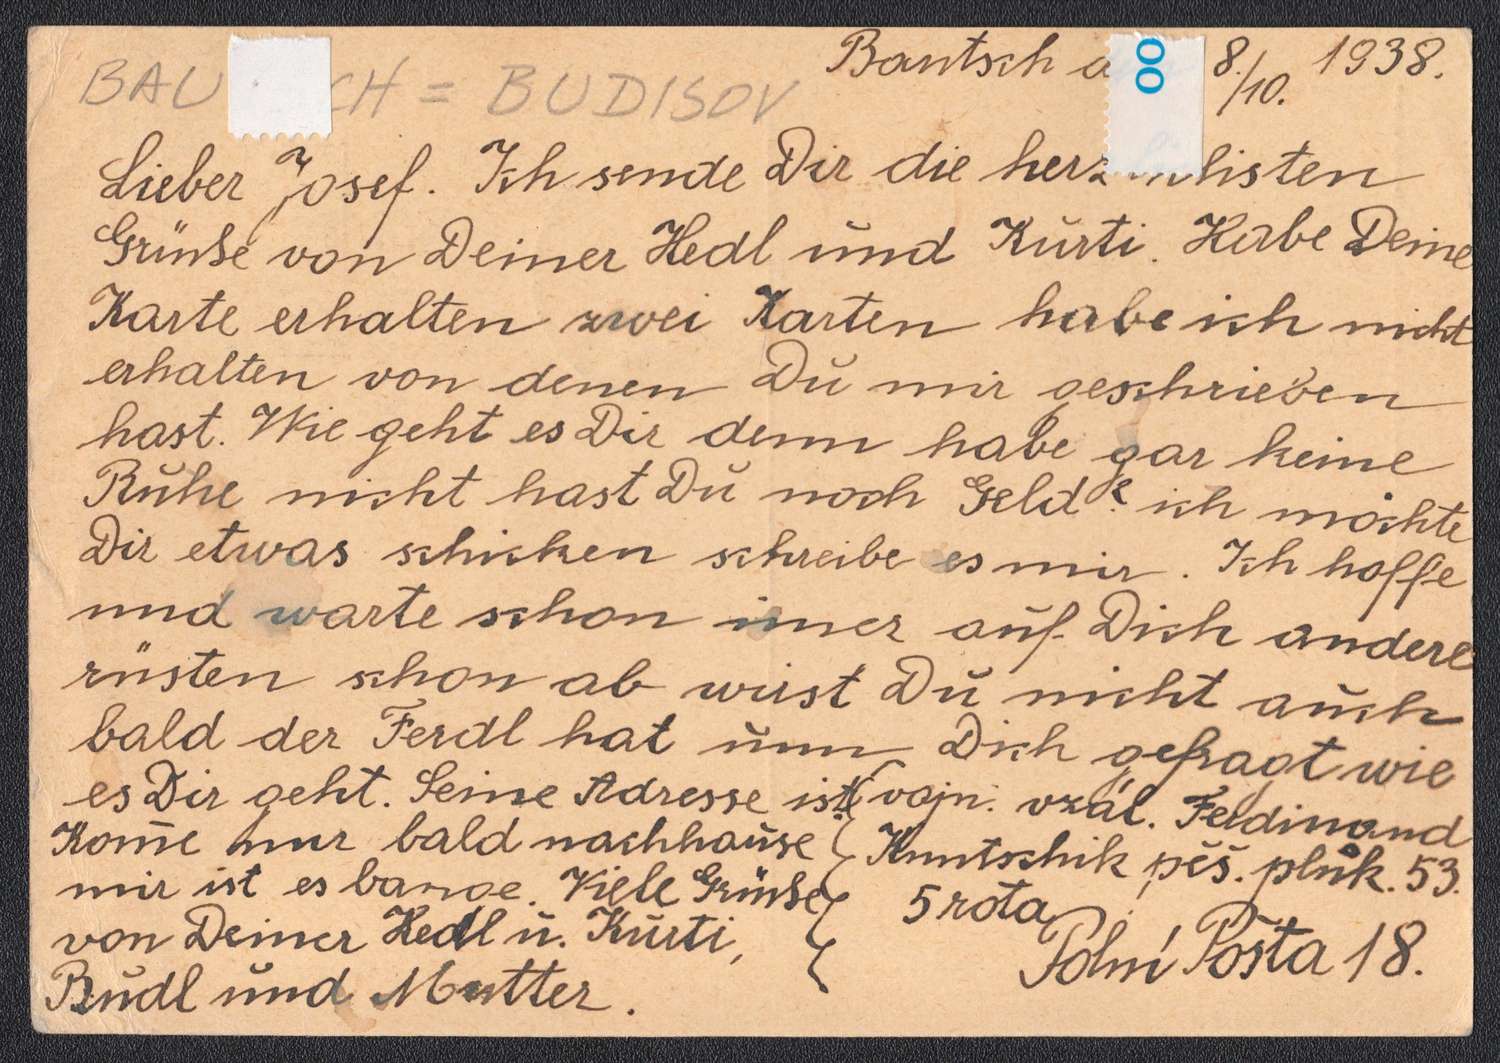 Bantsch a 8./10. 1938.
BAU CH = BUDISOV
00
Lieber Josef. Ich sende Dir die herz lichsten
Grüße von Deiner Hedl und Kurti. Habe Deine
Karte erhalten zwei Karten habe ich nicht
erhalten von denen Du mir geschrieben
hast. Wie geht es Dir denn habe gar keine
Ruhe nicht hast Du noch Geld? ich möchte
Dir etwas schicken schreibe es mir. Ich hoffe
und warte schon imer auf Dich andere
rüsten schon ab wirst Du nicht auch
bald der Ferdl hat umm Dich gefragt wie
es Dir geht. Seine Adresse ist: vojn. vzál. Ferdinand
Kome nur bald nachhause Knntschik pěš. pluk. 53.
mir ist es bange. Viele Grüße 5 rota
von Deiner Hedl u. Kurti, Polní Pošta 18.
Rudl und Mutter.